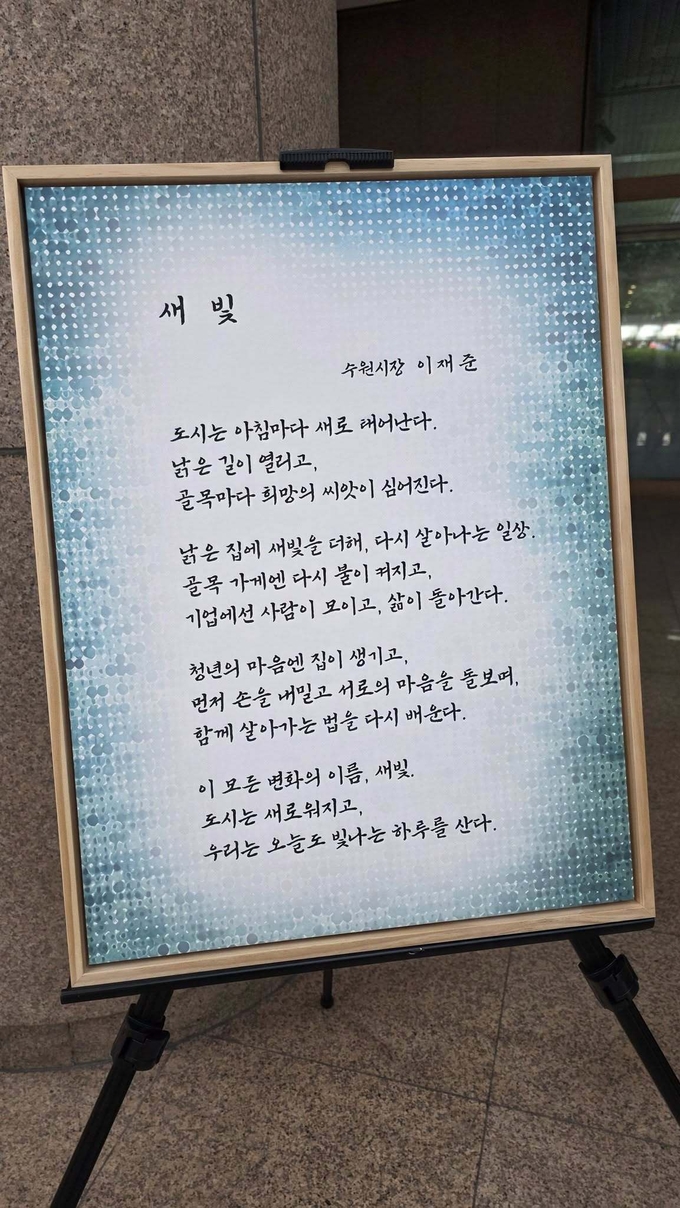 새 빛
수원시장 이재준
도시는 아침마다 새로 태어난다.
낡은 길이 열리고,
골목마다 희망의 씨앗이 심어진다.
낡은 집에 새빛을 더해, 다시 살아나는 일상.
골목 가게엔 다시 불이 켜지고,
기업에선 사람이 모이고, 삶이 돌아간다.
청년의 마음엔 집이 생기고,
먼저 손을 내밀고 서로의 마음을 돌보며,
함께 살아가는 법을 다시 배운다.
이 모든 변화의 이름, 새빛.
도시는 새로워지고,
우리는 오늘도 빛나는 하루를 산다.